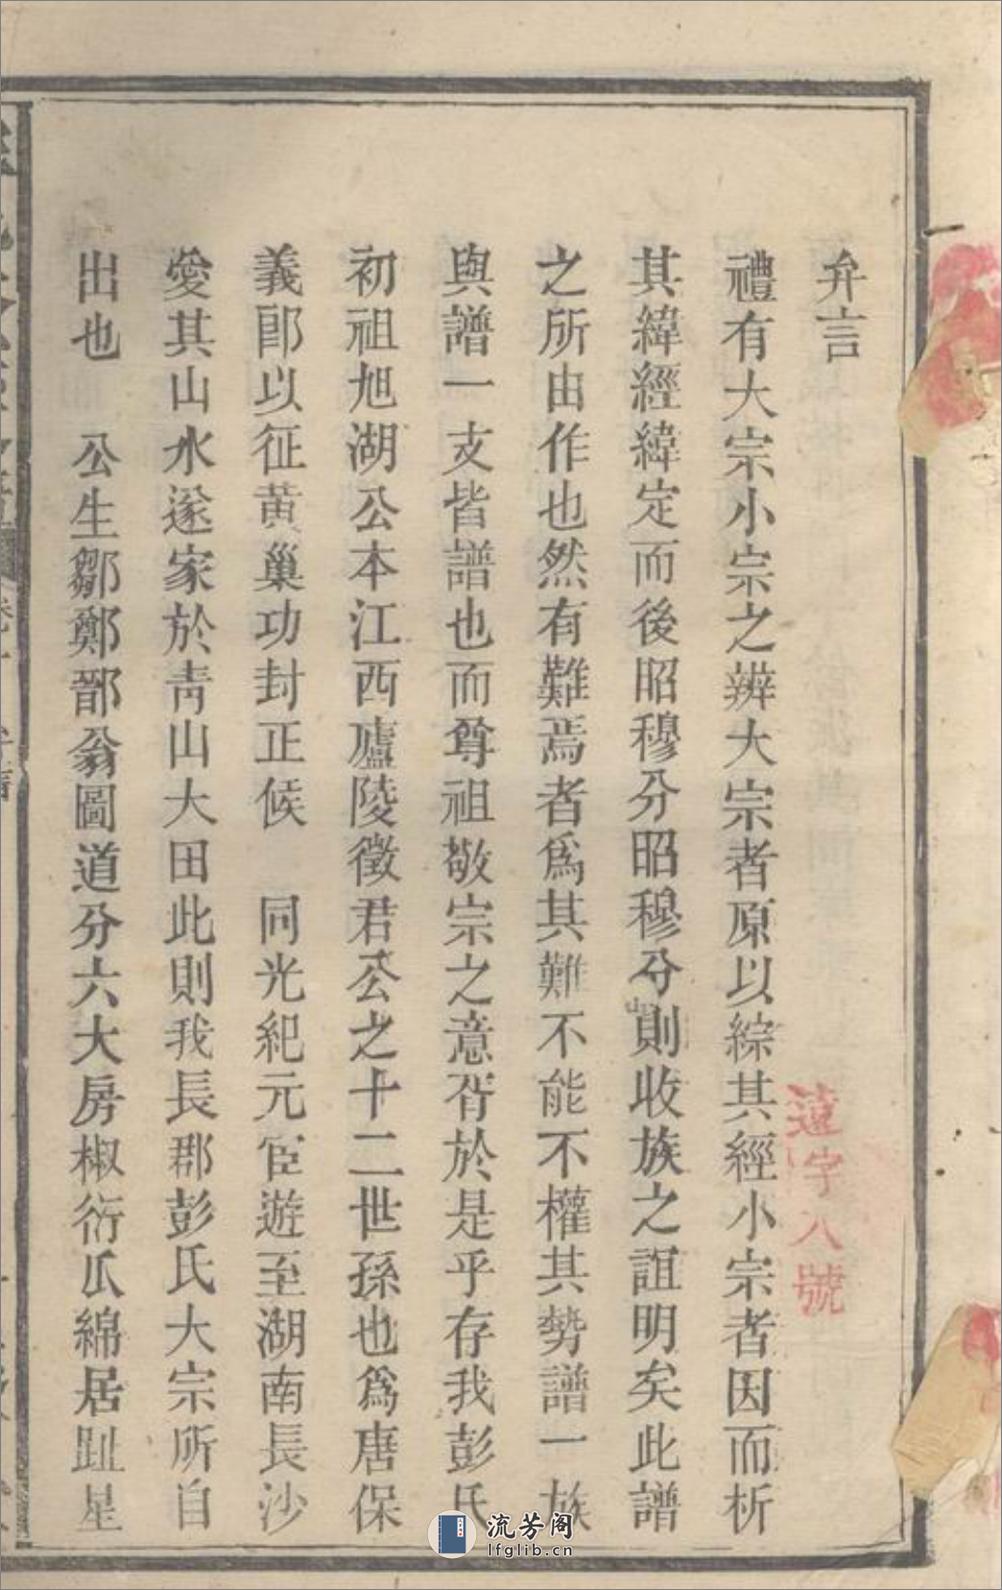 弁言
禮有大宗小宗之辨大宗者原以綜其經小宗者因而析
其緯經緯定而後昭穆分昭穆分則收族之誼明矣此譜
之所由作也然有難焉者爲其難不能不權其勢譜一族
與譜一支皆譜也而尊祖敬宗之意胥於是乎存我彭氏
初祖旭湖公本江西廬陵徵君公之十二世孫也爲唐保
義郎以征黄巢功封正候　同光紀元宦遊至湖南長沙
愛其山水遂家於青山大田此則我長郡彭氏大宗所自
出也　公生鄒鄭郚翁圖道分六大房椒衍瓜綿居趾星
蓮字八號
流芳阁
lfglib.cn